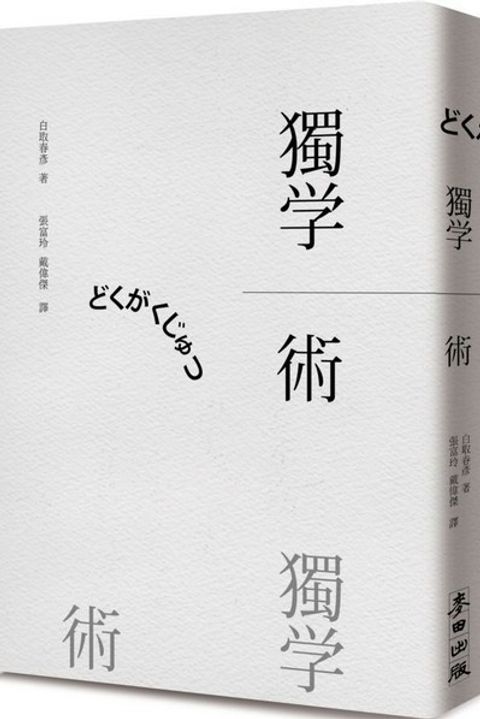 獨学
術
白取春彥 著
張富玲 戴偉傑 譯
どくがくじゅつ
獨学
術
どくが
獨学
術
白取春彥 著
張富玲 戴偉傑 譯
麥田出版